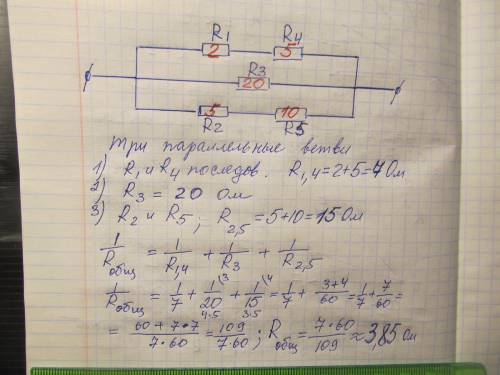 R1 R4
2 5
R3
20
5 10
R2 R5
Три параллельные ветви
1) R1 и R4 последов. R1,4=2+5=7Ом
2) R3 = 20 Ом
3) R2 и R5; R2,5=5+10=15Ом
1/Rобщ = 1/R1,4 + 1/R3 + 1/R2,5
1/Rобщ = 1/7 + 1/20 (3 + 1/15 (4 = 1/7 + 3+4/60 = 1/7 + 7/60 =
4·5 3·5
= 60+7·7/7·60 = 109/7·60 ; Rобщ = 7·60/109 ≈ 3,85 Ом